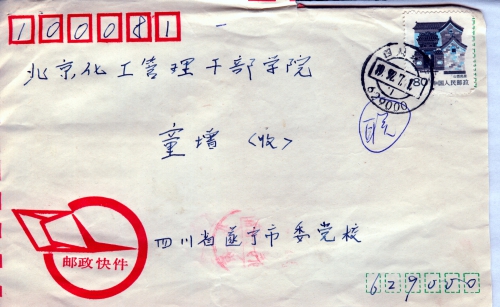 100081
北京化工管理干部学院
童增 (收)
邮政快件
四川省遂宁市委党校
629000
629000
中国人民邮政